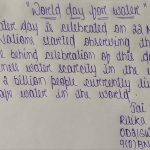 "World day for water"
ater day is celebrated on 22 M
Nations started observing th
e behind celebration of this d
eness water scarcity in the
2 billion people currently li
afe water in the world.
Jai
Ritika